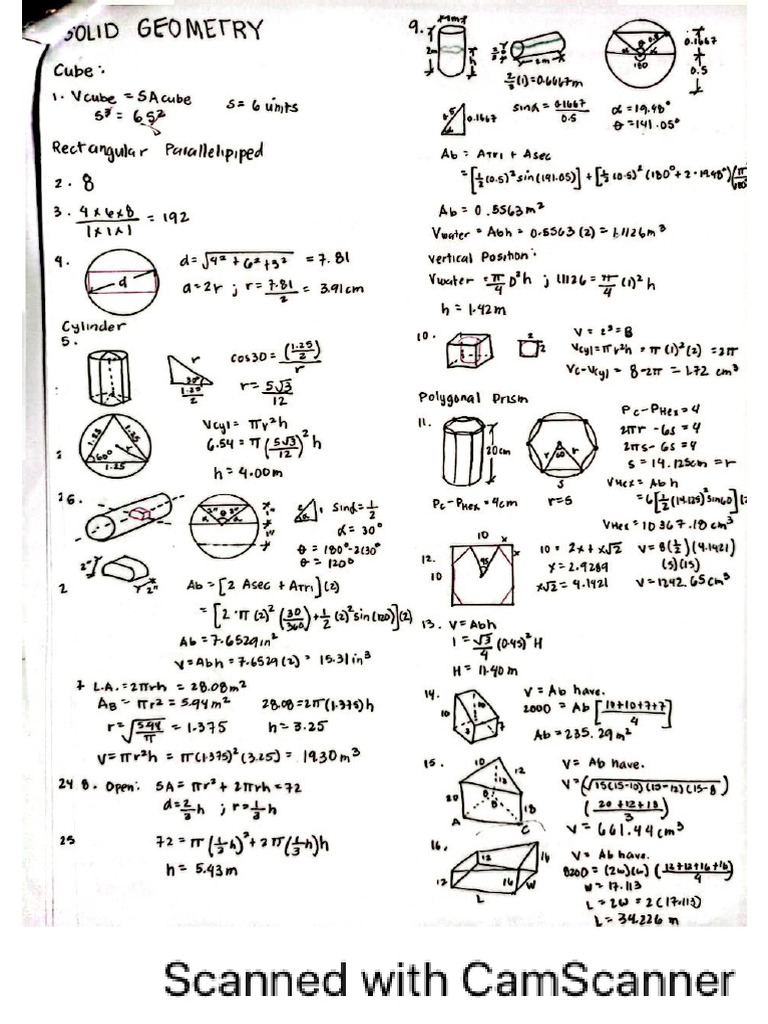 SOLID GEOMETRY
Cube:
1. Vcube = SAcube S = 6 units
S³ = 6S²
Rectangular Parallelipiped
2. 8
3. 4 x 6 x 8 / 1 x 1 x 1 = 192
4. d = √4² + 6² + 3² = 7.81
d = 2r ; r = 7.81/2 = 3.91 cm
d
Cylinder
5. cos30 = (1.25/2)/r
r = 5√3/12
r
30°
1.25/2
Vcyl = πr²h
6.54 = π(5√3/12)²h
h = 4.00m
1.25 1.25
60° r
1.25
6. sinα = 1/2
α = 30°
θ = 180° - 2(30°
θ = 120°
2" 2"
2 1
2"
2"
2
Ab = [2 Asec + ATRI](2)
= [2·π(2)²(30/360) + 1/2(2)²sin(120)](2)
Ab = 7.6529 in²
V = Abh = 7.6529(2) = 15.31 in³
7 L.A. = 2πrh = 28.08m²
AB = πr² = 5.94m² 28.08 = 2π(1.375)h
r = √5.94/π = 1.375 h = 3.25
V = πr²h = π(1.375)²(3.25) = 19.30 m³
24 8. Open: SA = πr² + 2πrh = 72
d = 2/3 h ; r = 1/3 h
25 72 = π(1/3 h)² + 2π(1/3 h)h
h = 5.43m
9. 1m
2m h
2m
0.5
θ
α α
180
0.1667
0.5
2/3(1) = 0.6667m
0.5 0.1667
α
sinα = 0.1667/0.5 α = 19.48°
θ = 141.05°
Ab = ATRI + Asec
= [1/2(0.5)²sin(141.05)] + [1/2(0.5)²(180° + 2·19.48°)(π/180
Ab = 0.5563m²
Vwater = Abh = 0.5563(2) = 1.1126m³
Vertical Position:
Vwater = π/4 D²h ; 1.1126 = π/4 (1)²h
h = 1.42m
10. 2
2
V = 2³ = 8
Vcyl = πr²h = π(1)²(2) = 2π
Vc - Vcyl = 8 - 2π = 1.72 cm³
Polygonal Prism
11. 20cm
r 60 r
s
r = s
Pc - PHex = 4cm
Pc - PHex = 4
2πr - 6s = 4
2πs - 6s = 4
s = 14.125cm = r
VHex = Abh
= 6[1/2(14.125)²sin60](2
VHex = 10367.18 cm³
12. 10 x
x
45
10
10 = 2x + x√2
x = 2.9289
x√2 = 4.1421
V = 8(1/2)(4.1421)
(5)(15)
V = 1242.65cm³
13. V = Abh
1 = √3/4 (0.45)²H
H = 11.40 m
14. 10 10 7
V = Ab have.
2000 = Ab[10+10+7+7/4]
Ab = 235.29m²
15. 10 12
20 18
A B C D
V = Ab have.
V = (√15(15-10)(15-12)(15-8)
(20+12+18/3)
V = 661.44cm³
16. 12 16
12 16 W
L
V = Ab have.
8200 = (2w)(w)(12+12+16+16/4)
W = 17.113
L = 2W = 2(17.113)
L = 34.226 m
Scanned with CamScanner